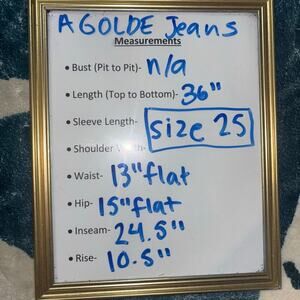 AGOLDE Jeans
Measurements
• Bust (Pit to Pit)- n/a
• Length (Top to Bottom)- 36"
• Sleeve Length-
size 25
• Shoulder
• Waist- 13" flat
• Hip- 15" flat
• Inseam- 24.5"
• Rise- 10.5"